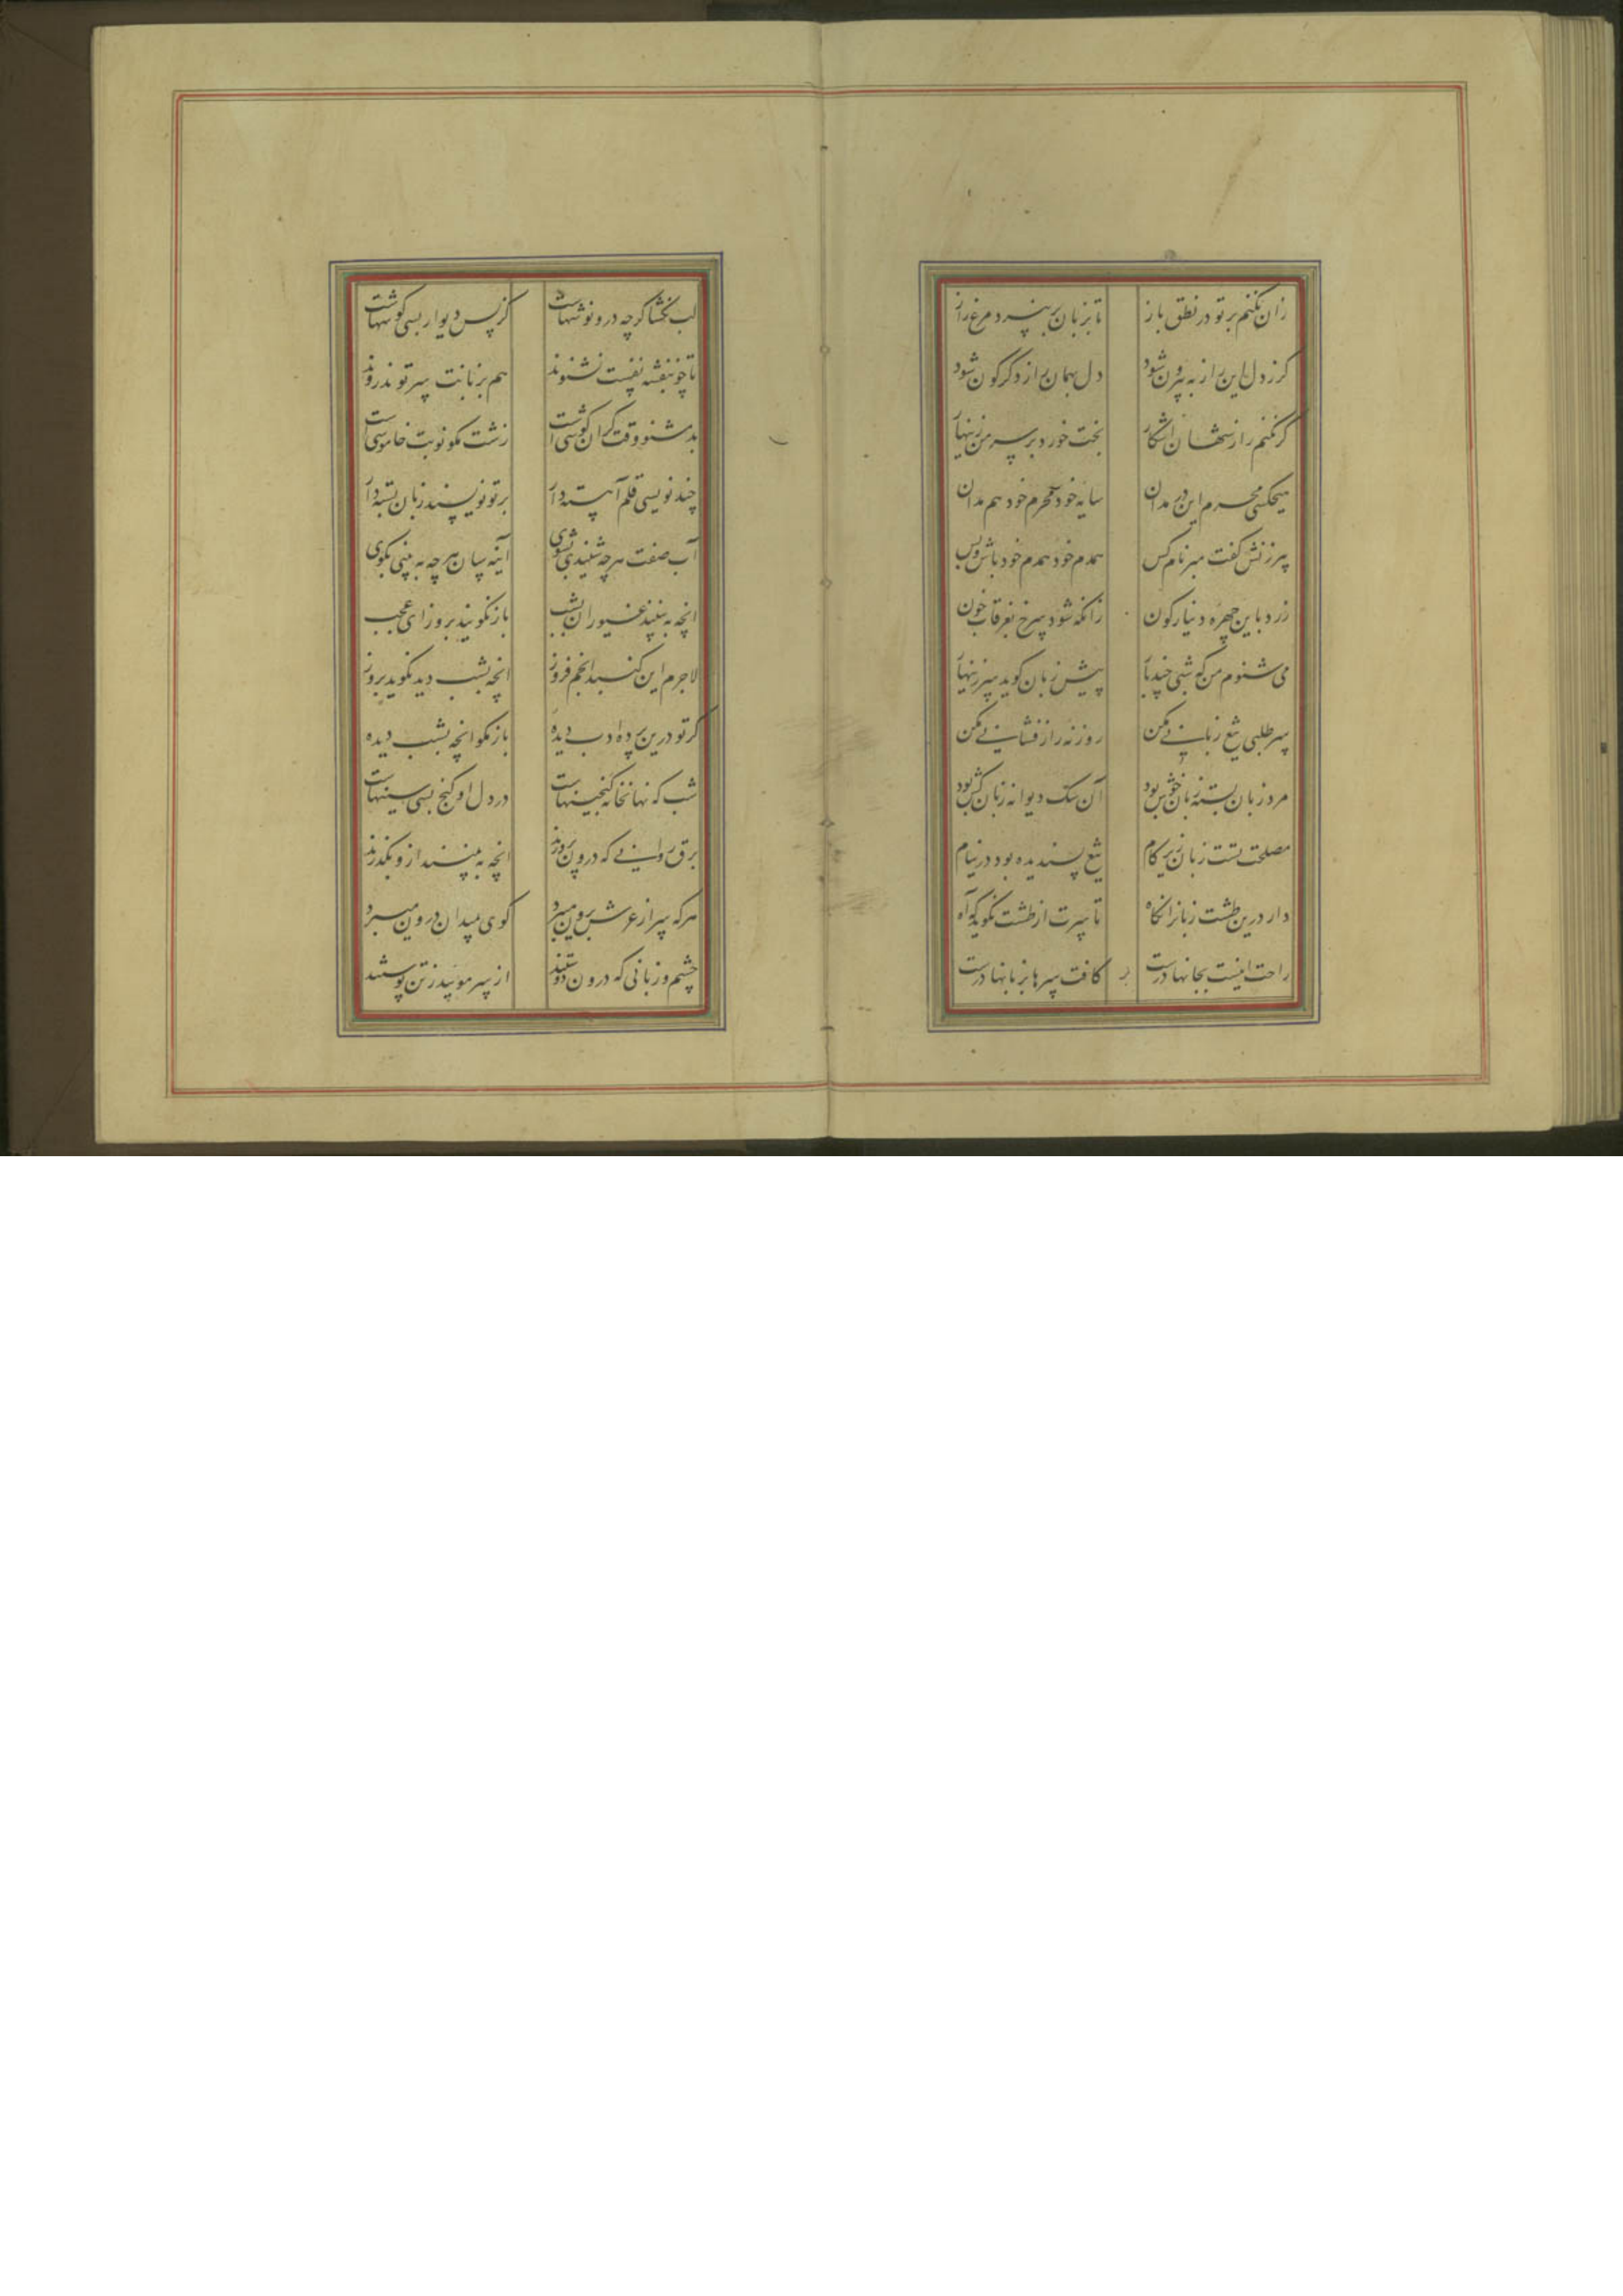 زان نکنم بر تو در نطق باز تا بزبان بر نپرد مرغ راز
کرز دل این راز به بیرون شود دل بهمان راز دکرکون شود
کر نکنم راز شهان آشکار بخت خورد بر سر من زینهار
هیچکسی محرم این در مدان سایه خود محرم خود هم مدان
پیرزنش کفت مبر نام کس همدم خود همدم خود باش و بس
زرد باین چهره دینارکون زانکه شود سرخ بغرقاب خون
می شنوم من که شبی چند بار پیش زبان کوید سر زینهار
سر طلبی تیغ زبانی مکن روز نه راز فشانی مکن
مرد زبان بسته زبان خوش بود آن سک دیوانه زبان کش بود
مصلحت تست زبان زیر کام تیغ پسندیده بود در نیام
دار درین طشت زبانرا نکاه تا سرت از طشت نکوید که آه
راحت اینست بجانها درست کافت سرها بزبانها درست
لب نکشا کرچه درو نوشهاست کز پس دیوار بسی کوشهاست
تا چو بنفشه نفست نشنوند هم بزبانت سر تو ندروند
بد مشنو وقت کران کوشی است زشت مکو نوبت خاموشی است
چند نویسی قلم آهسته دار بر تو نویسند زبان بسته دار
آب صفت هرچه شنیدی بشوی آینه سان هرچه به بینی مکوی
انچه به بینند غیوران بشب باز نکویند بروز ای عجب
لاجرم این کنبد انجم فروز انچه بشب دید نکوید بروز
کر تو درین پرده ادب دیده باز مکو انچه بشب دیده
شب که نهانخانه کنجینهاست در دل او کنج بسی سینهاست
برق روانی که درون پرورند انچه به بینند ازو بکذرند
هرکه سر از عرش برون میبرد کوی میدان درون میبرد
چشم و زبانی که درون دوستند از سر مویند ز تن پوستند